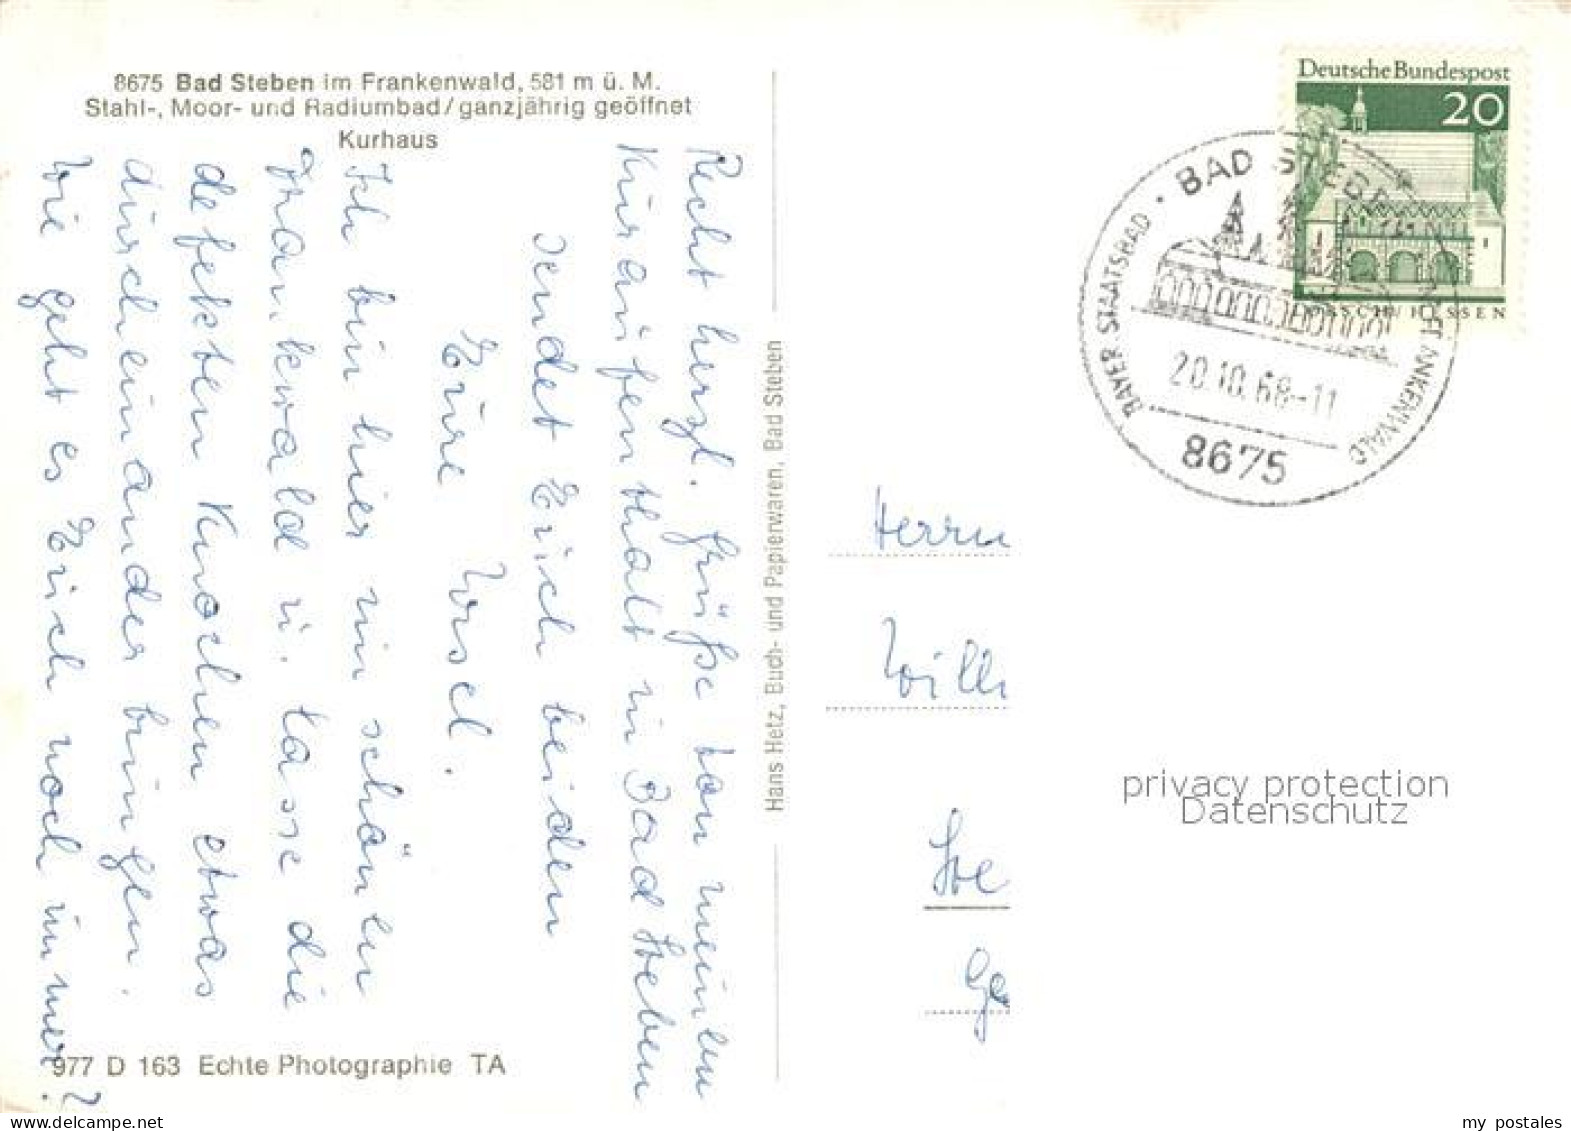 8675 Bad Steben im Frankenwald, 581 m ü. M.
Stahl-, Moor- und Radiumbad/ganzjährig geöffnet
Kurhaus
Recht herzl. Grüße von meinem
Kuraufenthalt in Bad Steben
sendet Euch beiden
Eure Ursel.
Ich bin hier im schönen
Frankenwald u. lasse die
defekten Knochen etwas
durcheinander bringen.
Wie geht es Euch noch immer?
977 D 163 Echte Photographie TA
Hans Hetz, Buch- und Papierwaren, Bad Steben
Deutsche Bundespost
20
LORSCH/HESSEN
BAD STEBEN
BAYER. STAATSBAD
FRANKENWALD
20.10.68-11
8675
Herrn
Willi
Ste
Ge
privacy protection
Datenschutz
my postales